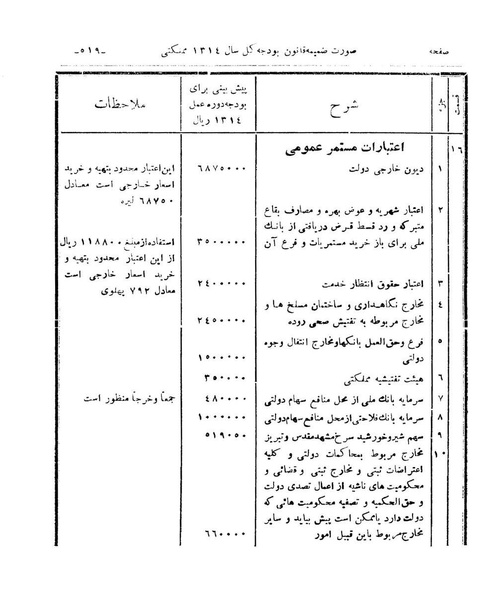 صفحه صورت ضمیمه قانون بودجه کل سال ۱۳۱۴ مملکتی -۵۱۹-
قسمت جزء شرح پیش بینی برای بودجه دوره عمل ۱۳۱۴ ریال ملاحظات
۱۶ اعتبارات مستمر عمومی
۱ دیون خارجی دولت ۶۸۷۵۰۰۰۰ این اعتبار محدود بتهیه و خرید
اسعار خارجی است معادل
۶۸۷۵۰۰ لیره
۲ اعتبار شهریه و عوض بهره و مصارف بقاع
متبرکه و رد قسط قرض دریافتی از بانک
ملی برای باز خرید مستمریات و فرع آن ۳۵۰۰۰۰۰۰ استفاده از مبلغ ۱۱۸۸۰۰ ریال
از این اعتبار محدود بتهیه و
خرید اسعار خارجی است
معادل ۷۹۲ پهلوی
۳ اعتبار حقوق انتظار خدمت ۲۴۰۰۰۰۰
۴ مخارج نگاهداری و ساختمان مسلخ ها و
مخارج مربوطه به تفتیش صحی روده ۲۴۵۰۰۰۰
۵ فرع وحق العمل بانکها ومخارج انتقال وجوه
دولتی ۱۵۰۰۰۰۰
۶ هیئت تفتیشیه مملکتی ۳۵۰۰۰۰
۷ سرمایه بانک ملی از محل منافع سهام دولتی ۴۸۰۰۰۰ جمعاً وخرجاً منظور است
۸ سرمایه بانک فلاحتی از محل منافع سهام دولتی ۱۰۰۰۰۰۰
۹ سهم شیروخورشید سرخ مشهدمقدس وتبریز ۵۱۹۰۵۰
۱۰ مخارج مربوط بمحاکمات دولتی و کلیه
اعتراضات ثبتی و مخارج ثبتی و قضائی و
محکومیت های ناشیه از اعمال تصدی دولت
و حق الحکمیه و تصفیه محکومیت هائی که
دولت دارد یاممکن است پیش بیاید و سایر
مخارج مربوط باین قبیل امور ۶۶۰۰۰۰